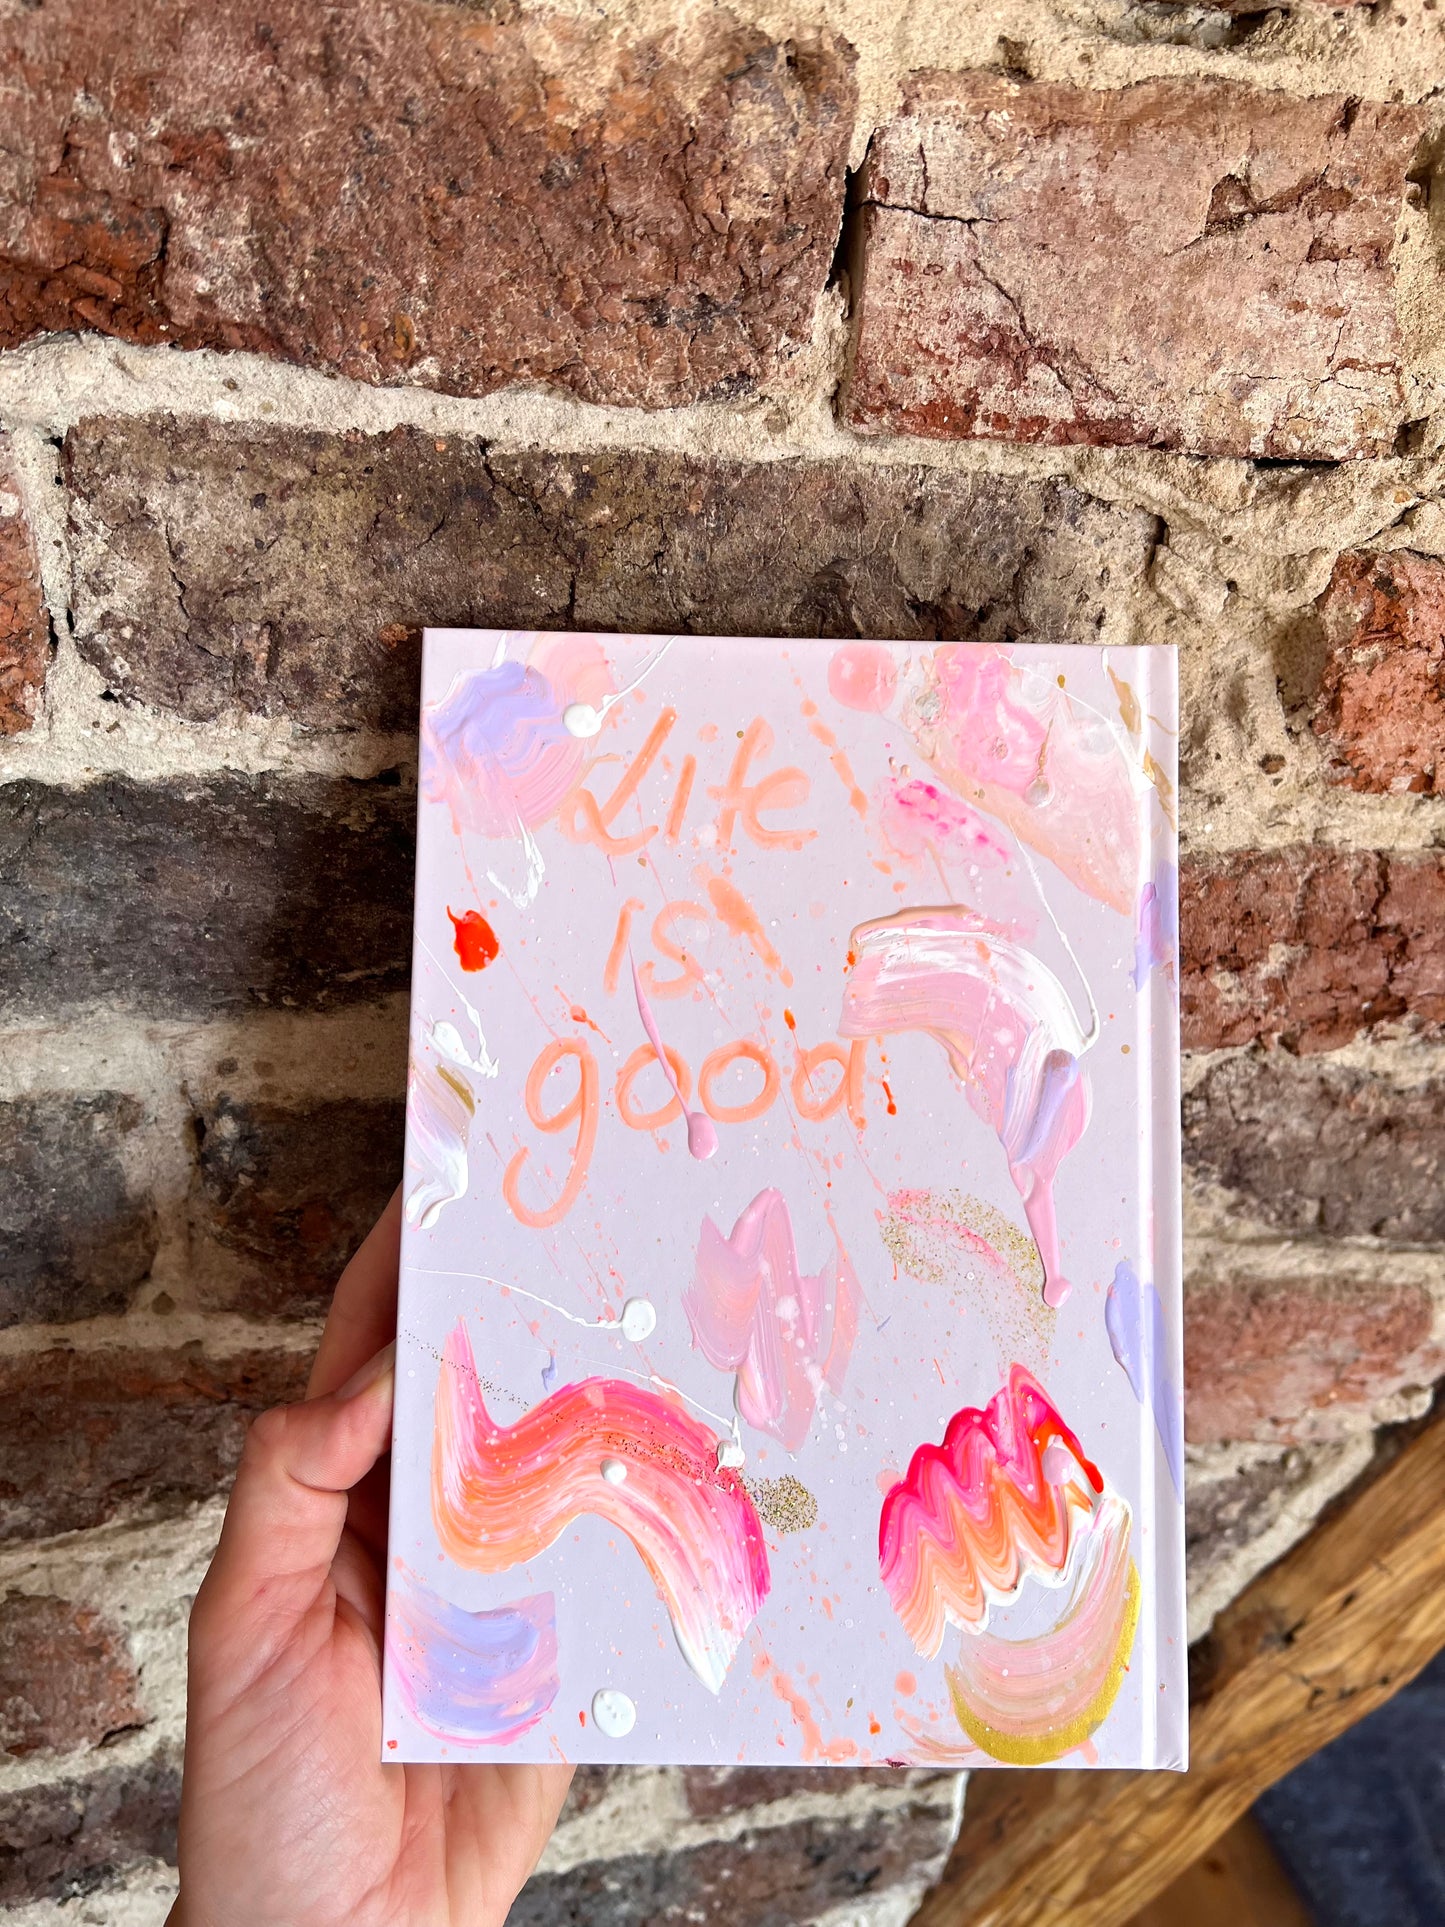 Life
is
good